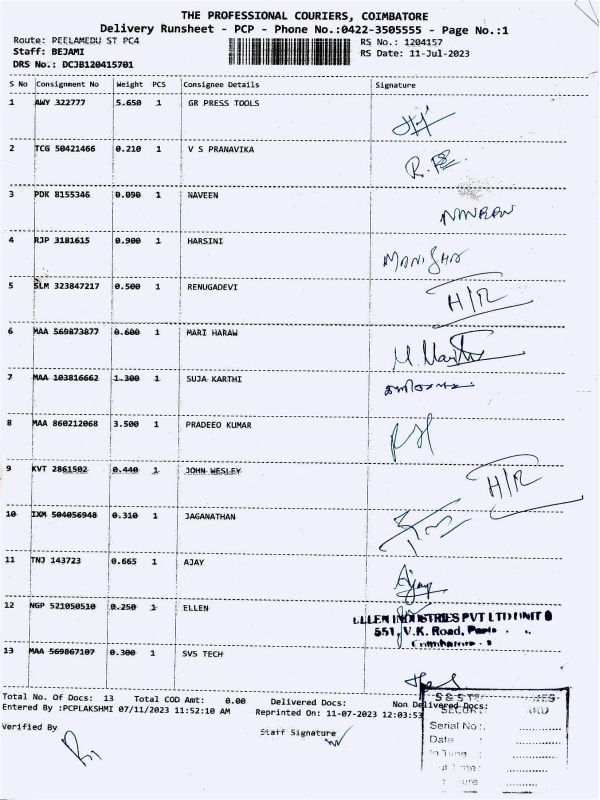 THE PROFESSIONAL COURIERS, COIMBATORE
Delivery Runsheet - PCP - Phone No.:0422-3505555 - Page No.:1
Route: PEELAMEDU ST PC4 RS No.: 1204157
Staff: BEJAMI RS Date: 11-Jul-2023
DRS No.: DCJB120415701
S No AWB No Weight PCS Consignee Details Signature
1 AWY 322777 5.650 1 GR PRESS TOOLS
2 TCG 50421466 0.210 1 V S PRANAVIKA
3 PDK 8155346 0.090 1 NAVEEN NAVEEN
4 RJP 3181615 0.900 1 HARSINI MANISHA
5 SLM 323847217 0.500 1 RENUGADEVI H/R
6 MAA 569873877 0.600 1 MARI HARAW
7 MAA 103816662 1.300 1 SUJA KARTHI
8 MAA 860212068 3.500 1 PRADEEO KUMAR
9 KVT 2861502 0.440 1 JOHN WESLEY H/R
10 IXM 504056948 0.310 1 JAGANATHAN
11 TNJ 143723 0.665 1 AJAY Ajay
12 NGP 521050510 0.250 1 ELLEN ELLEN INDUSTRIES PVT LTD UNIT
551, V.K. Road,
Coimbatore
13 MAA 569867107 0.300 1 SVS TECH
Total No. Of Docs: 13 Total COD Amt: 0.00 Delivered Docs: Non Delivered Docs:
Entered By :PCPLAKSHMI 07/11/2023 11:52:10 AM Reprinted On: 11-07-2023 12:03:53
Verified By Staff Signature
Serial No:
Date
In Time :